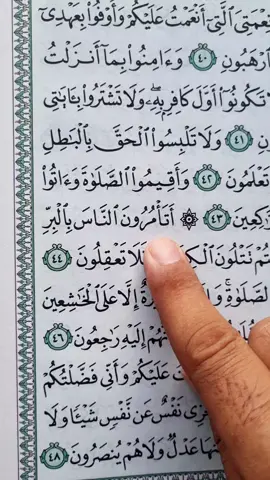 نِعْمَتِيَ ٱلَّتِيٓ أَنْعَمْتُ عَلَيْكُمْ وَأَوْفُوا۟ بِعَهْدِيٓ
فَٱرْهَبُونِ ٤٠ وَءَامِنُوا۟ بِمَآ أَنزَلْتُ
تَكُونُوٓا۟ أَوَّلَ كَافِرٍۭ بِهِۦۖ وَلَا تَشْتَرُوا۟ بِـَٔايَٰتِي
٤١ وَلَا تَلْبِسُوا۟ ٱلْحَقَّ بِٱلْبَٰطِلِ
تَعْلَمُونَ ٤٢ وَأَقِيمُوا۟ ٱلصَّلَوٰةَ وَءَاتُوا۟
ٱلرَّٰكِعِينَ ٤٣ ۞ أَتَأْمُرُونَ ٱلنَّاسَ بِٱلْبِرِّ
تَتْلُونَ تَعْقِلُونَ ٤٤
وَٱلصَّلَوٰةِۚ إِلَّا عَلَى ٱلْخَٰشِعِينَ
إِلَيْهِ رَٰجِعُونَ ٤٦
عَلَيْكُمْ وَأَنِّي فَضَّلْتُكُمْ
نَفْسٌ عَن نَّفْسٍ شَيْـًٔا وَلَا
عَدْلٌ وَلَا هُمْ يُنصَرُونَ ٤٨